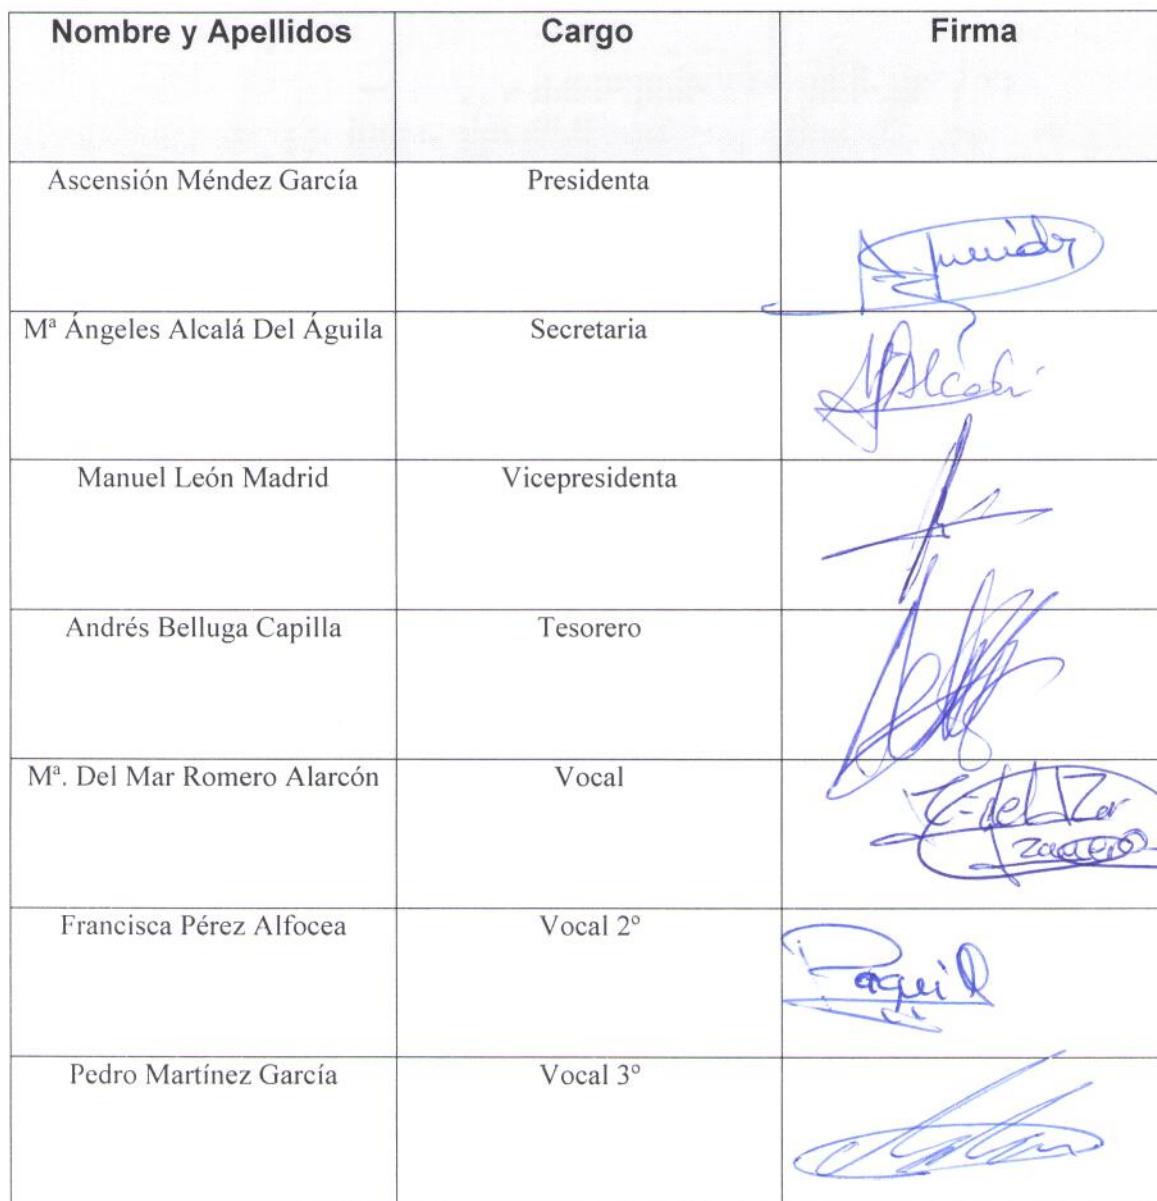 Nombre y Apellidos Cargo Firma
Ascensión Méndez García Presidenta
Mª Ángeles Alcalá Del Águila Secretaria
Manuel León Madrid Vicepresidenta
Andrés Belluga Capilla Tesorero
Mª. Del Mar Romero Alarcón Vocal
Francisca Pérez Alfocea Vocal 2º
Paqui
Pedro Martínez García Vocal 3º